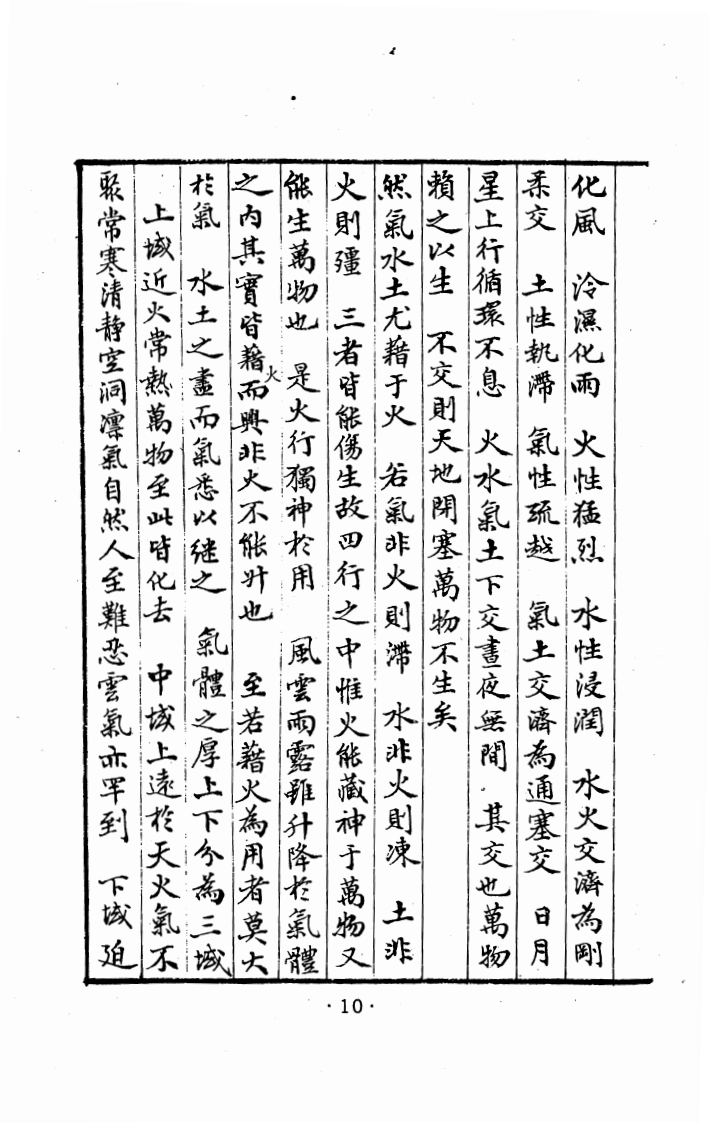 化風　冷濕化雨　火性猛烈　水性浸潤　水火交濟為剛
柔交　土性執滯　氣性疏越　氣土交濟為通塞交　日月
星上行循環不息　火水氣土下交晝夜無間　其交也萬物
賴之以生　不交則天地閉塞萬物不生矣
然氣水土尤藉于火　若氣非火則滯　水非火則凍　土非
火則殭　三者皆能傷生故四行之中惟火能藏神于萬物又
能生萬物也　是火行獨神於用　風雲雨露雖升降於氣體
之內其實皆藉火而興非火不能升也　至若藉火為用者莫大
於氣　水土之盡而氣悉以继之　氣體之厚上下分為三域
上域近火常熱萬物至此皆化去　中域上遠於天火氣不
聚常寒清静空洞凛氣自然人至難恐雲氣亦罕到　下域迫
·10·